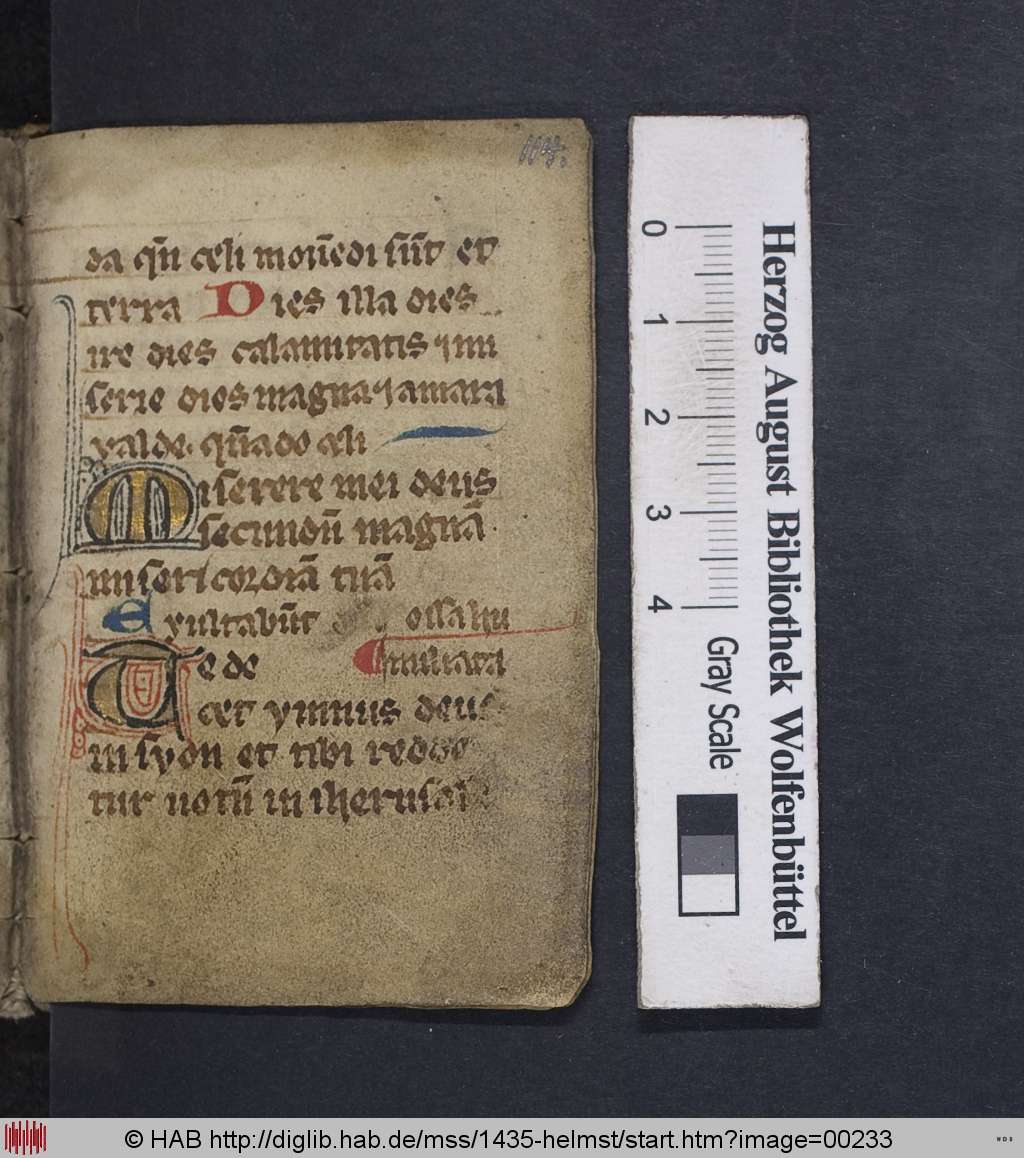 114.
da qn̄ celi mouēdi sūt et
terra Dies illa dies
ire dies calamitatis ⁊ mi
serie dies magna ⁊ amara
valde. qn̄ado celi
Miserere mei deus
secundū magnā
misericordiā tuā
Exultabūt ossa hu
Te de miliata
cet ymnus deus
in syon et tibi redde
tur uotū in iherusal
Herzog August Bibliothek Wolfenbüttel
0 1 2 3 4 Gray Scale
© HAB http://diglib.hab.de/mss/1435-helmst/start.htm?image=00233